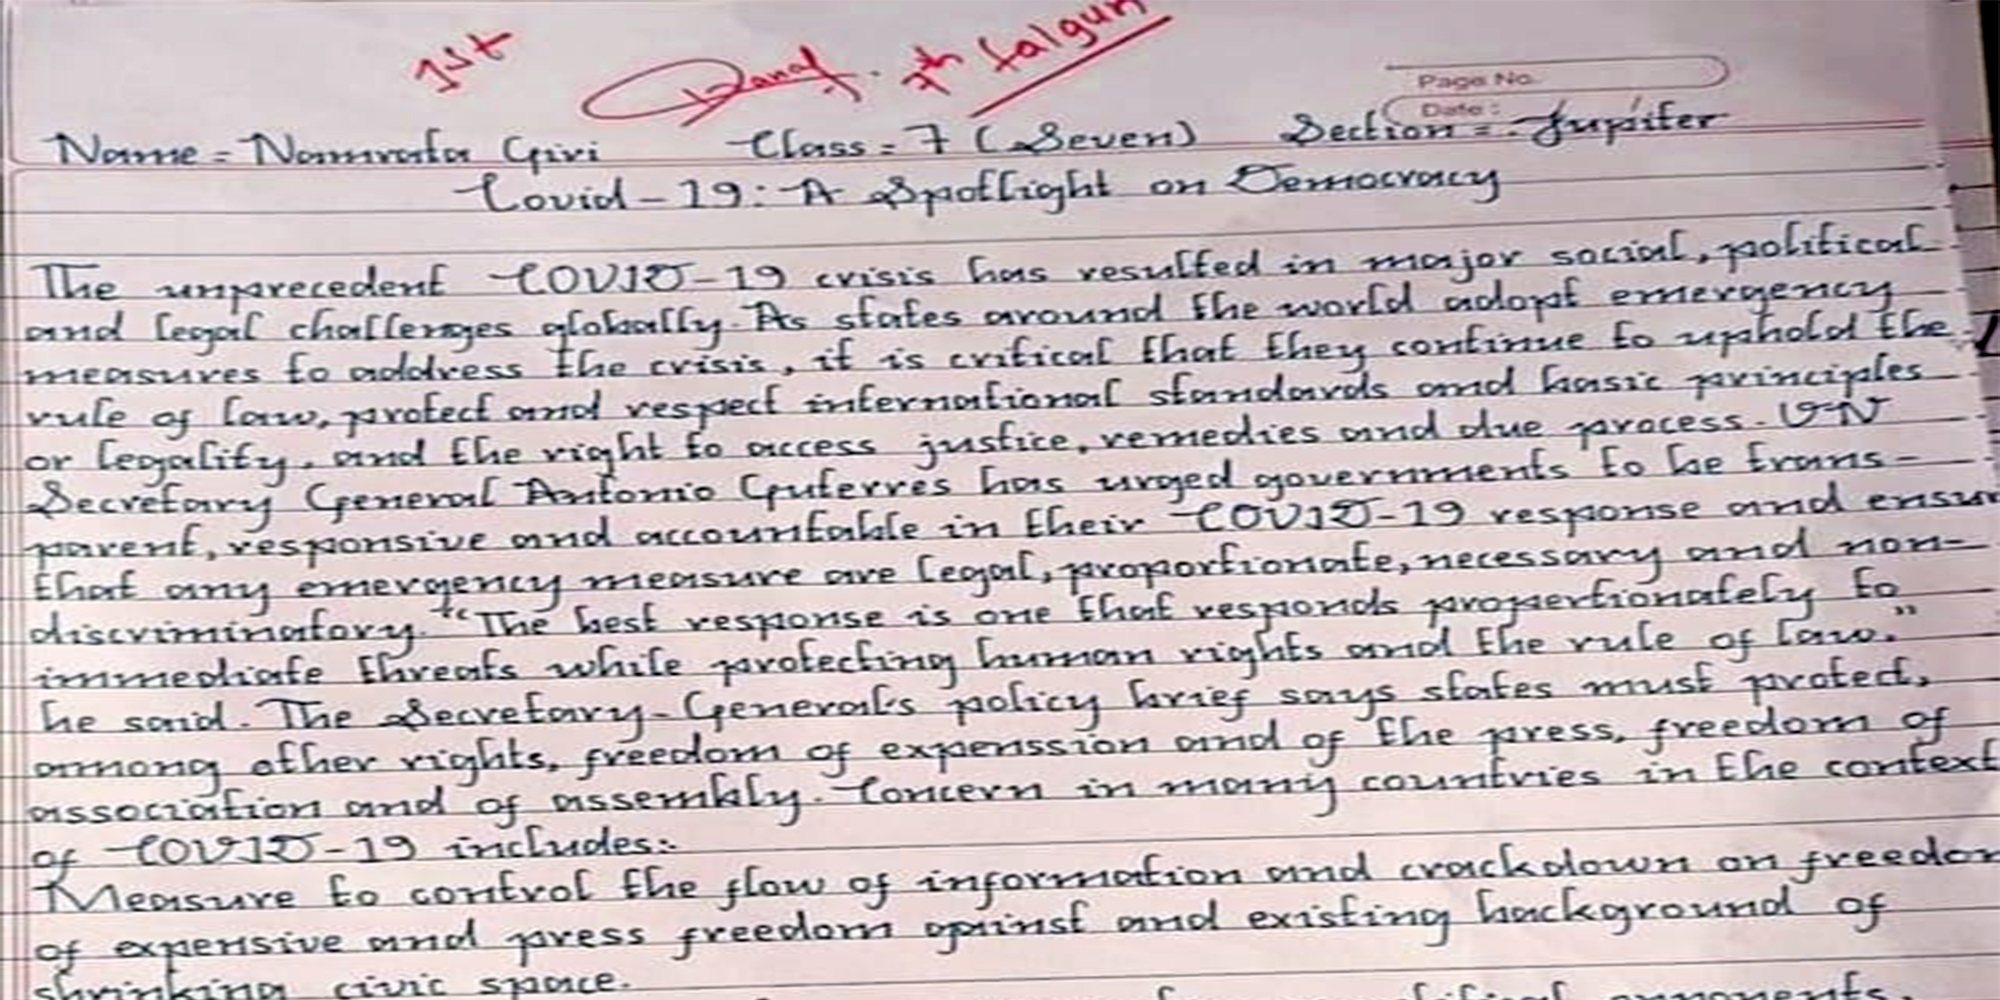 1st
7th falgun
Page No.
Date :
Name = Namrata Giri Class = 7 (Seven) Section = Jupiter
Covid-19: A Spotlight on Democracy
The unprecedent COVID-19 crisis has resulted in major social, political
and legal challenges globally. As states around the world adopt emergency
measures to address the crisis, it is critical that they continue to uphold the
rule of law, protect and respect international standards and basic principles
or legality, and the right to access justice, remedies and due process. UN
Secretary General Antonio Guterres has urged governments to be trans-
parent, responsive and accountable in their COVID-19 response and ensur
that any emergency measure are legal, proportionate, necessary and non-
discriminatory. "The best response is one that responds propertionately to
immediate threats while protecting human rights and the rule of law."
he said. The Secretary-General's policy brief says states must protect,
among other rights, freedom of expenssion and of the press, freedom of
association and of assembly. Concern in many countries in the context
of COVID-19 includes:-
Measure to control the flow of information and crackdown on freedom
of expensive and press freedom against and existing background of
shrinking civic space.